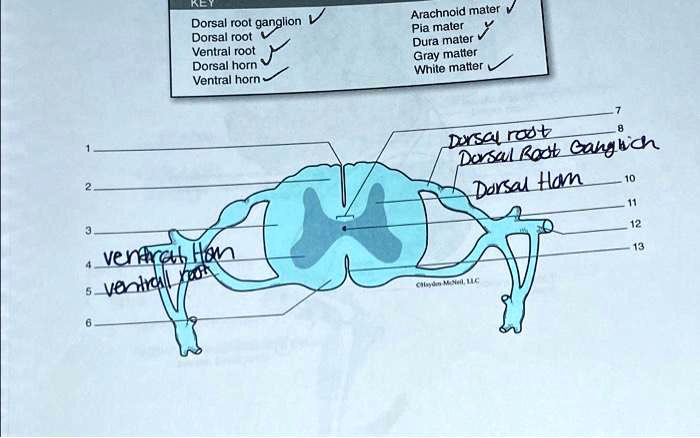 KEY
Dorsal root ganglion
Dorsal root
Ventral root
Dorsal horn
Ventral horn
Arachnoid mater
Pia mater
Dura mater
Gray matter
White matter
1
2
3
4 ventral Horn
5 ventrall root
6
7
Dorsal root 8
Dorsal Root Ganglich
Dorsal Horn 10
11
12
13
©Hayden-McNeil, LLC